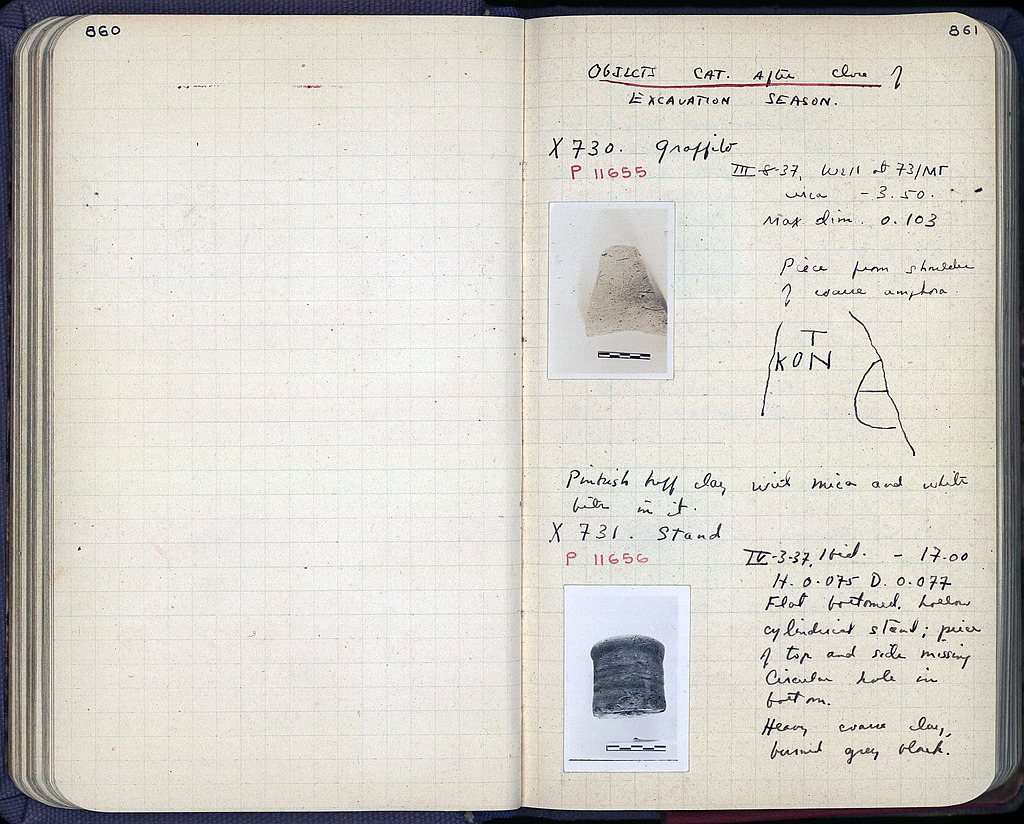 860
861
OBJECTS CAT. After close of
EXCAVATION SEASON.
X 730. graffito
P 11655
III-8-37, Well at 73/MΓ
circa - 3.50.
Max dim. 0.103
Piece from shoulder
of coarse amphora.
T
KON
Pinkish buff clay with mica and white
bits in it.
X 731. Stand
P 11656
IV-3-37, Ibid. - 17.00
H. 0.075 D. 0.077
Flat bottomed, hollow
cylindrical stand; piece
of top and side missing
Circular hole in
bottom.
Heavy coarse clay,
burned grey black.